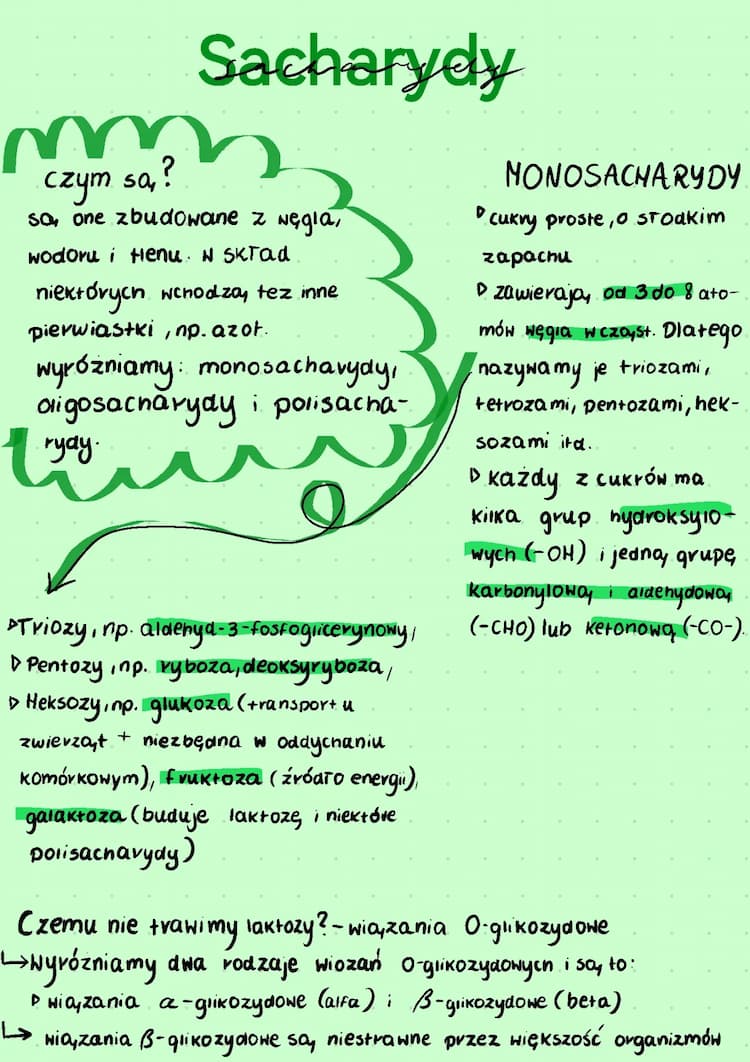 Sacharydy
sacharydy
czym są?
są one zbudowane z węgla,
wodoru i tlenu. W skład
niektórych wchodzą też inne
pierwiastki, np. azot.
wyróżniamy: monosacharydy,
oligosacharydy i polisacha-
rydy.
MONOSACHARYDY
▷ cukry proste, o słodkim
zapachu
▷ zawierają od 3 do 8 ato-
mów węgla w cząst. Dlatego
nazywamy je triozami,
tetrozami, pentozami, hek-
sozami itd.
▷ każdy z cukrów ma
kilka grup hydroksylo-
wych (-OH) i jedną grupę
karbonylową i aldehydową
(-CHO) lub ketonową (-CO-).
▷ Triozy, np. aldehyd-3-fosfoglicerynowy,
▷ Pentozy, np. ryboza, deoksyryboza,
▷ Heksozy, np. glukoza (transport u
zwierząt + niezbędna w oddychaniu
komórkowym), fruktoza (źródło energii),
galaktoza (buduje laktozę i niektóre
polisacharydy)
Czemu nie trawimy laktozy? - wiązania O-glikozydowe
↳ Wyróżniamy dwa rodzaje wiozań O-glikozydowych i są to:
▷ wiązania α-glikozydowe (alfa) i β-glikozydowe (beta)
↳ wiązania β-glikozydowe są niestrawne przez większość organizmów